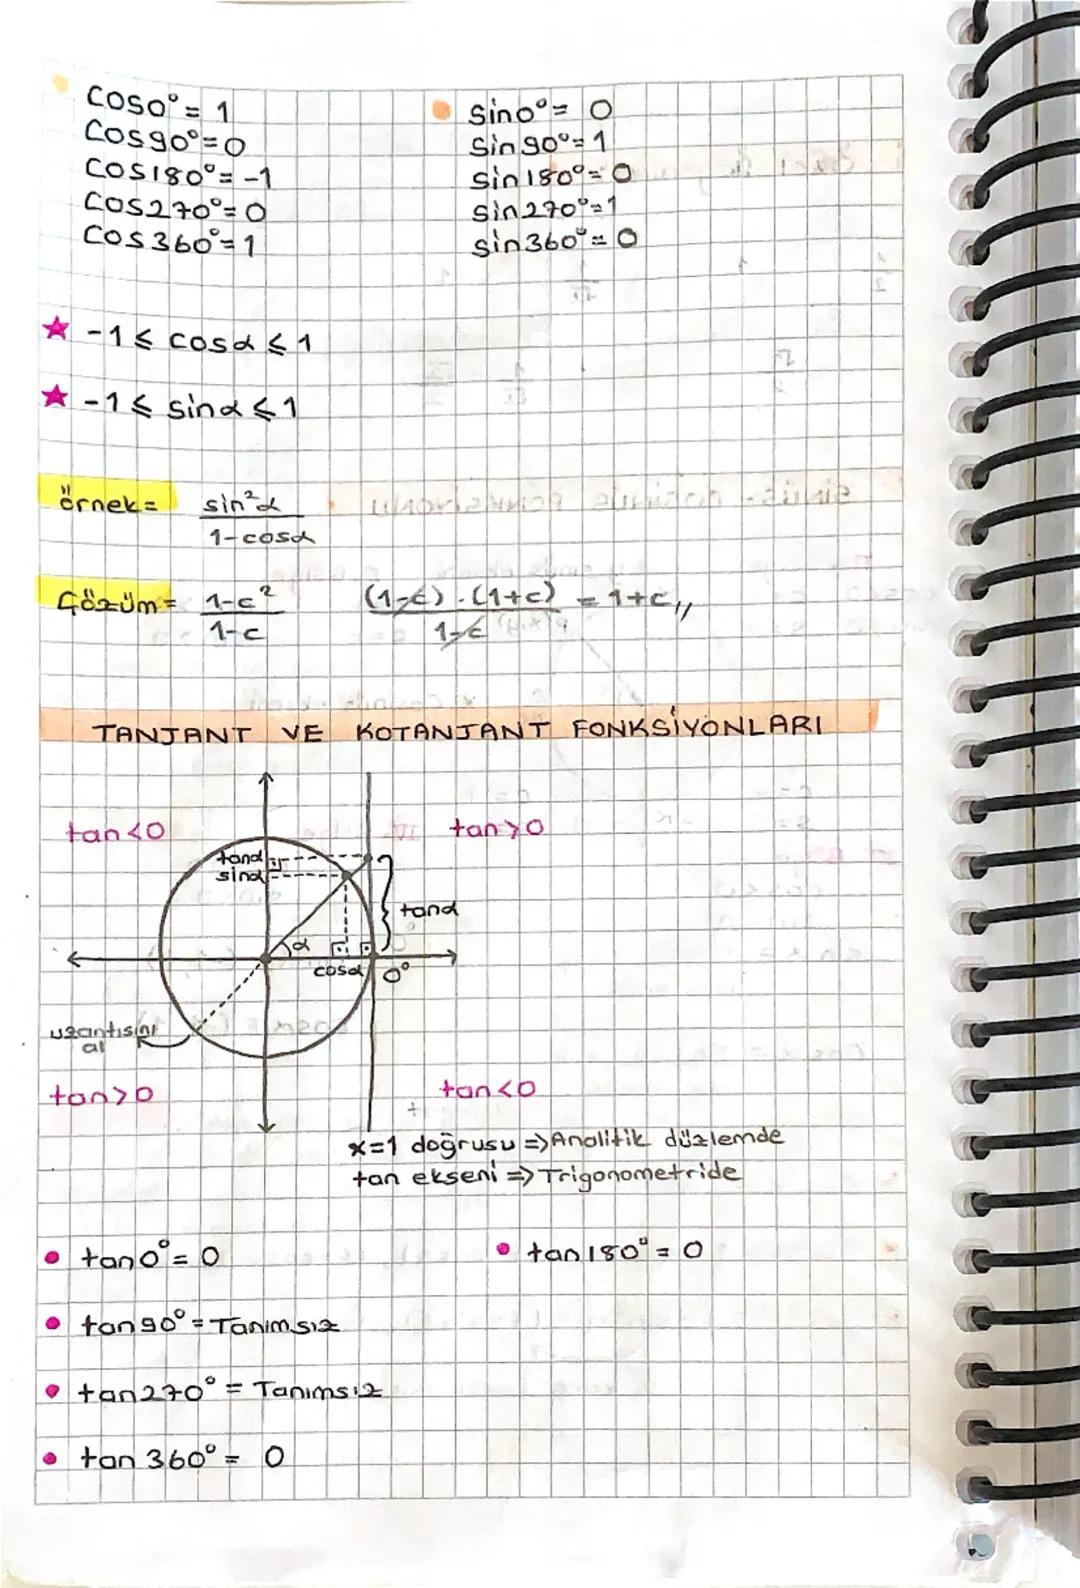 cos0° = 1
cos90° = 0
cos180° = -1
cos270° = 0
cos360° = 1
sin0° = 0
sin90° = 1
sin180° = 0
sin270° = 1
sin360° = 0
-1 ⩽ cosα ⩽ 1
-1 ⩽ sinα ⩽ 1
örnek = sin²α / 1-cosα
Çözüm = 1-c² / 1-c (1-c).(1+c) / 1-c = 1+c,,
TANJANT VE KOTANJANT FONKSİYONLARI
tan<0
tan>0
tanα
sinα
tanα
α
cosα
0°
uzantısını
al
tan>0
tan<0
x=1 doğrusu => Analitik düzlemde
tan ekseni => Trigonometride
tan0° = 0
tan180° = 0
tan90° = Tanımsız
tan270° = Tanımsız
tan 360° = 0